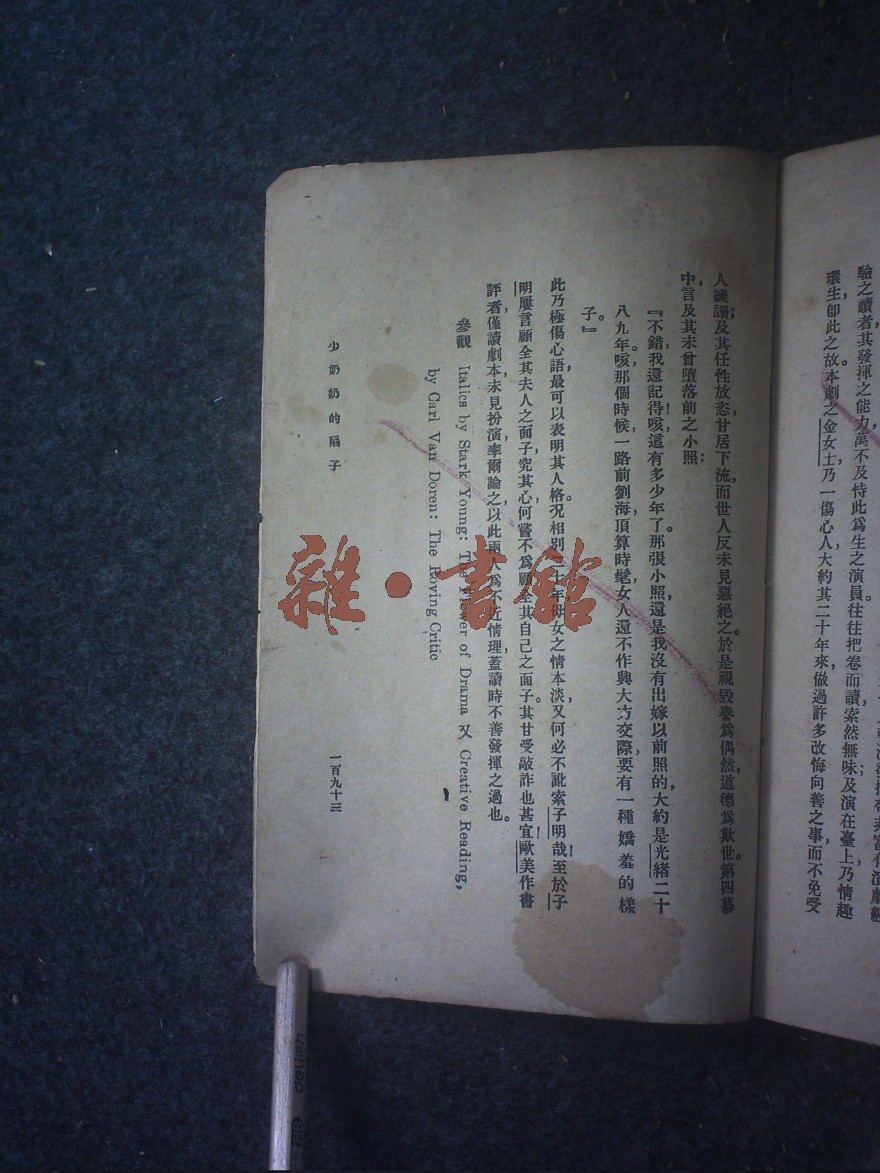 驗之讀者其發揮之能力，萬不及恃此爲生之演員。往往把卷而讀，索然無味；及演在臺上，乃情趣
環生，卽此之故。本劇之金女士乃一傷心人，大約其二十年來，做過許多改悔向善之事，而不免受
人譏訕；及其任性放恣，甘居下流，而世人反未見惡絕之。於是視毀譽爲偶然，道德爲欺世。第四幕
中，言及其未曾墮落前之小照：
『不錯，我還記得！咳，這有多少年了。那張小照還是我沒有出嫁以前照的，大約是光緒二十
八九年。咳，那個時候，一路前劉海頂算時髦，女人還不作興大方，交際要有一種嬌羞的樣
子。』
此乃極傷心語，最可以表明其人格。況相別二十年，母女之情本淡，又何必不訛索子明哉！至於子
明屢言顧全其夫人之面子，究其心，何嘗不爲顧全其自己之面子。其甘受敲詐也甚宜！歐美作書
評者，僅讀劇本，未見扮演，率爾論之，以此兩人爲不近情理，蓋讀時不善發揮之過也。
參觀 Italics by Stark Young: The Flower of Drama 又 Creative Reading,
by Carl Van Doren: The Roving Critic
少奶奶的扇子
一百九十三
雜·書館
deli 得力
HB